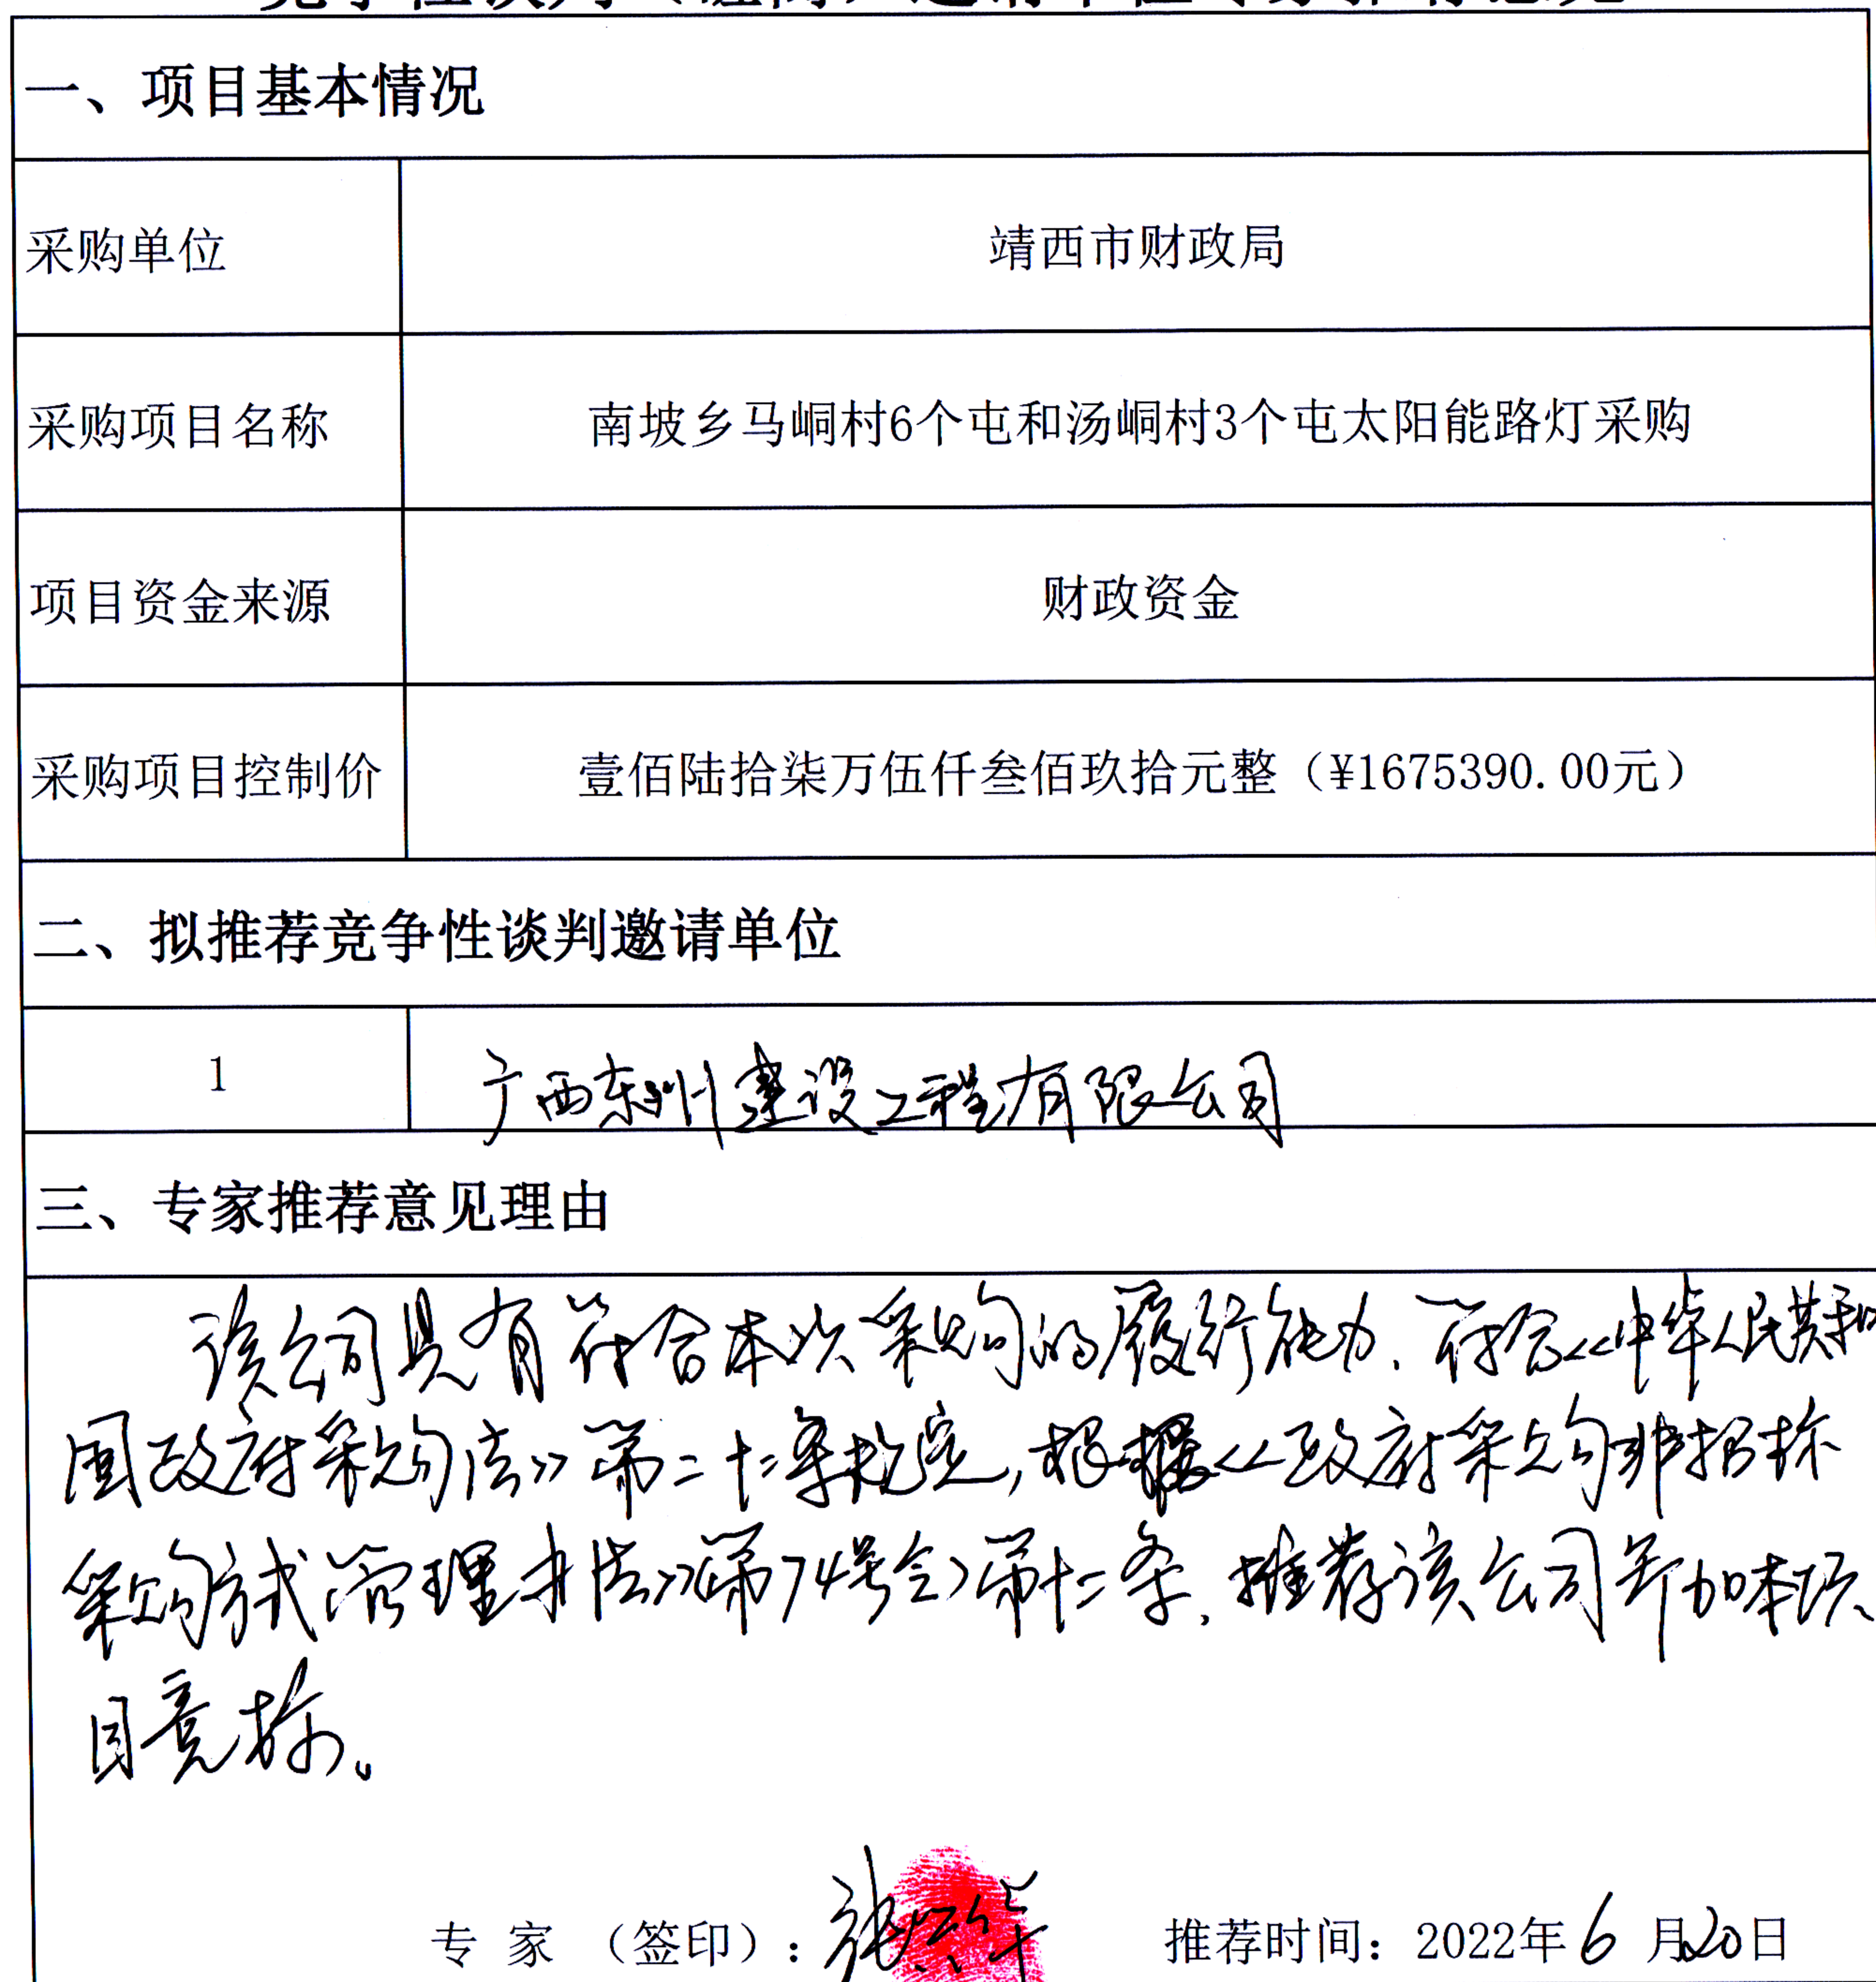 一、项目基本情况
采购单位
靖西市财政局
采购项目名称
南坡乡马峒村6个屯和汤峒村3个屯太阳能路灯采购
项目资金来源
财政资金
采购项目控制价
壹佰陆拾柒万伍仟叁佰玖拾元整（¥1675390.00元）
二、拟推荐竞争性谈判邀请单位
1
广西东圳建设工程有限公司
三、专家推荐意见理由
该公司具有符合本次采购的履行能力、符合<<中华人民共和
国政府采购法>>第二十二条规定，根据<<政府采购非招标
采购方式管理办法>>(第74号令)第十二条，推荐该公司参加本项
目竞标。
专 家 （签印）：
推荐时间：2022年6月20日